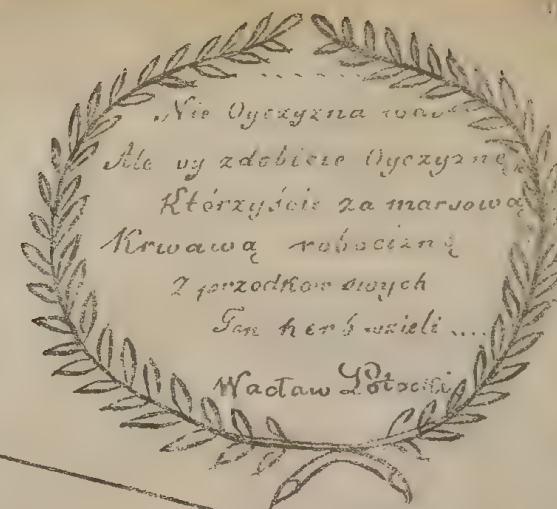 . . . . . . . .
Nie Oyczyzna was
Ale wy zdobicie Oyczyznę,
Którzyście za marsową
Krwawą robociznę
Z przodków swych
Ten herb wzieli ....
Wacław Potocki